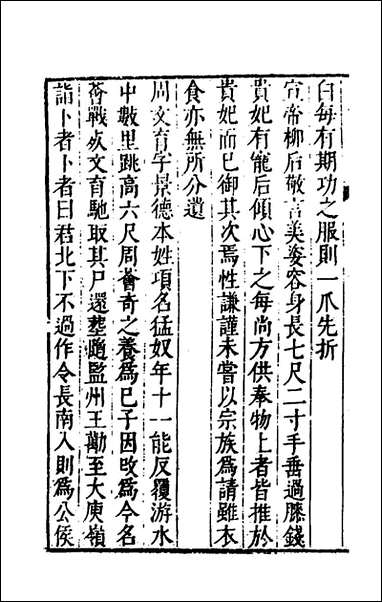 白每有期功之服則一爪先折
宣帝柳后敬言美姿容身長七尺二寸手垂過膝錢
貴妃有寵后傾心下之每尚方供奉物上者皆推於
貴妃而已御其次焉性謙謹未嘗以宗族爲請雖衣
食亦無所分遺
周文育字景德本姓項名猛奴年十一能反覆游水
中數里跳高六尺周薈奇之養爲己子因改爲今名
薈戰死文育馳取其尸還塟隨監州王勱至大庾嶺
詣卜者卜者曰君北下不過作令長南入則爲公侯